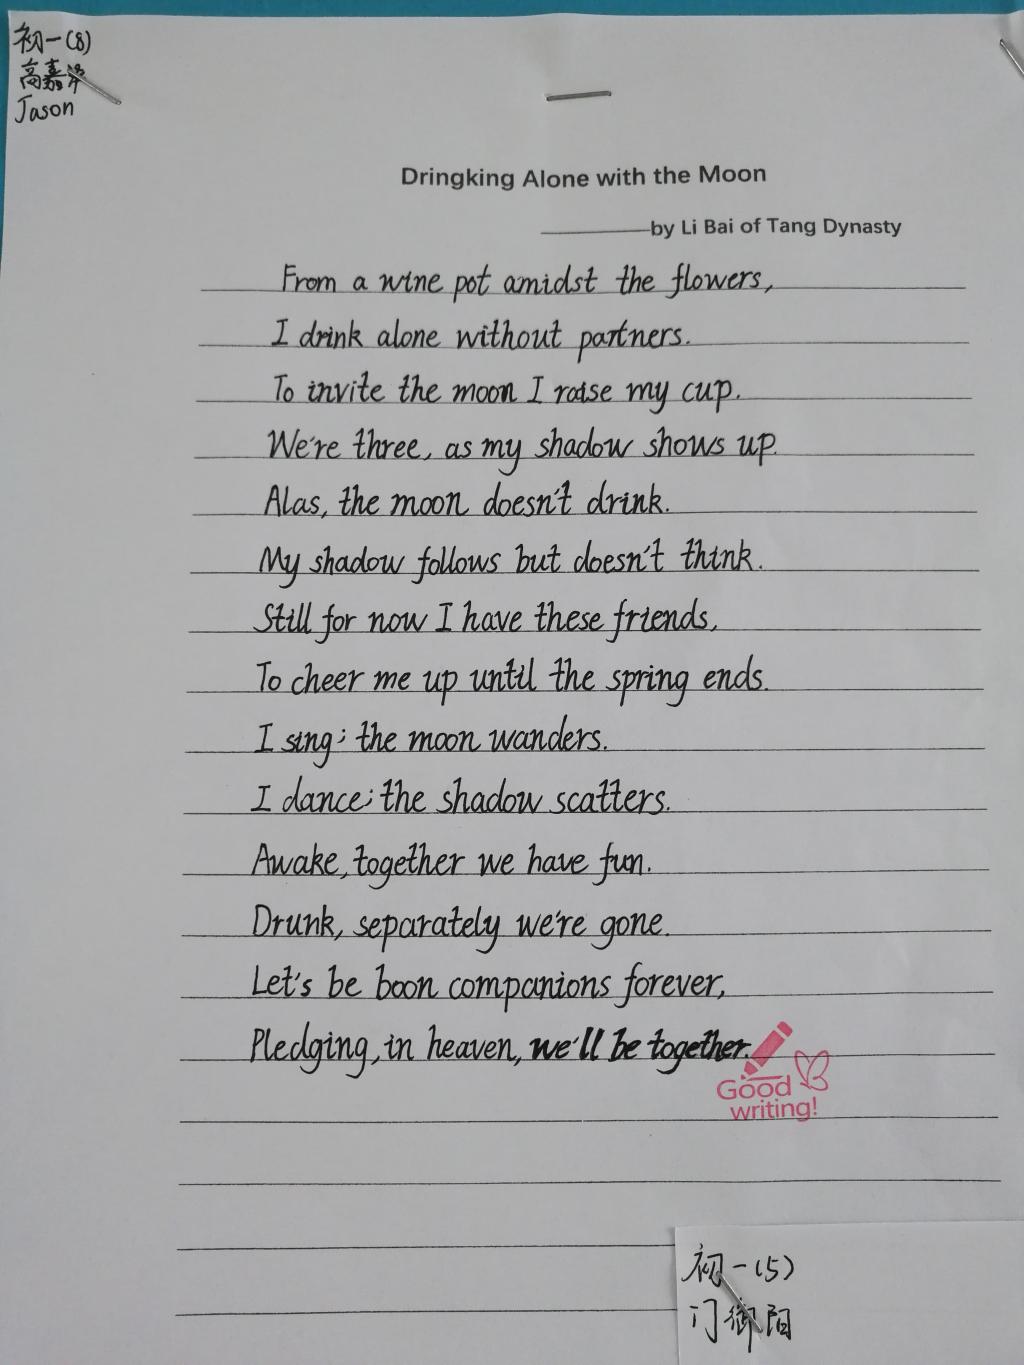 初一(8)
高嘉
Jason
Dringking Alone with the Moon
————by Li Bai of Tang Dynasty
From a wine pot amidst the flowers,
I drink alone without partners.
To invite the moon I raise my cup.
We're three, as my shadow shows up.
Alas, the moon doesn't drink.
My shadow follows but doesn't think.
Still for now I have these friends,
To cheer me up until the spring ends.
I sing; the moon wanders.
I dance; the shadow scatters.
Awake, together we have fun.
Drunk, separately we're gone.
Let's be boon companions forever,
Pledging, in heaven, we'll be together.
Good
writing!
初一(5)
门御阳